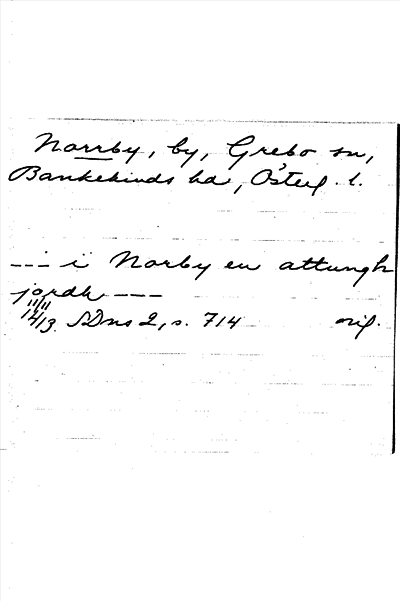 Norrby, by, Grebo sn,
Bankekinds hd, Österg. l.
--- i Norby en attungh
jordh ---
11/11
1413. SDns 2, s. 714 orig.